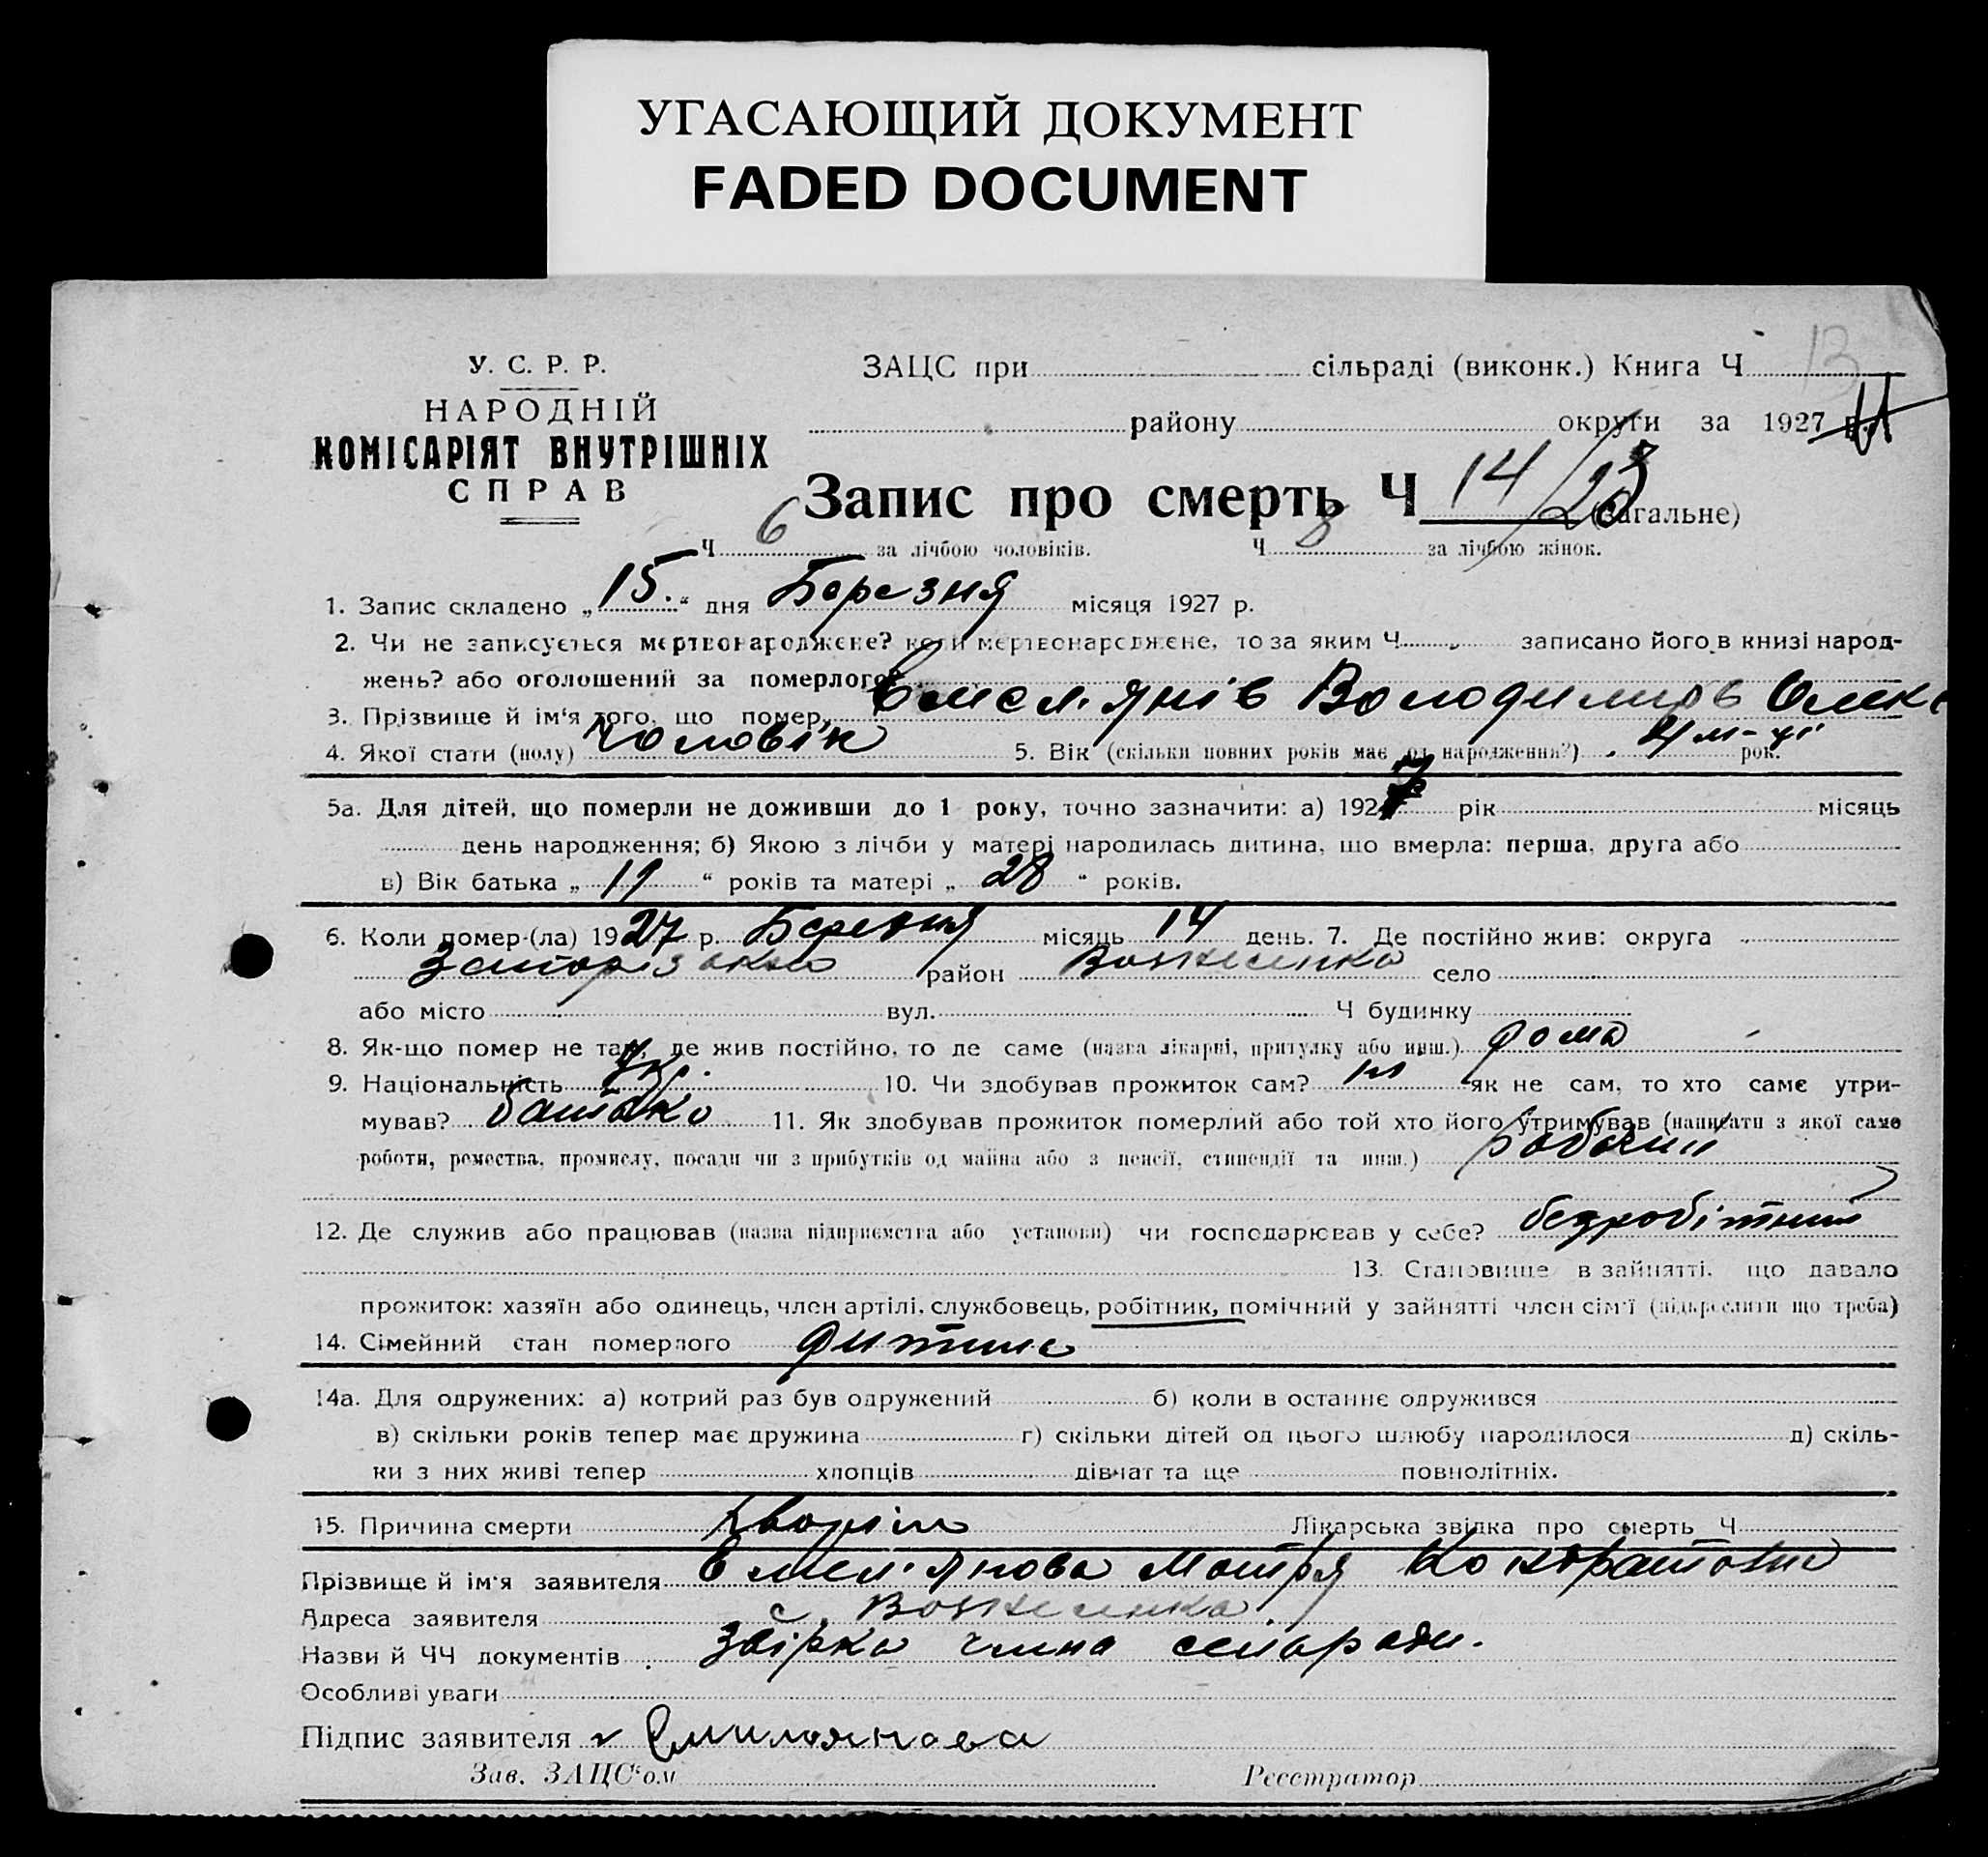 УГАСАЮЩИЙ ДОКУМЕНТ
FADED DOCUMENT
13
У. С. Р. Р.
НАРОДНІЙ
КОМІСАРІЯТ ВНУТРІШНІХ
СПРАВ
ЗАЦС при сільраді (виконк.) Книга Ч
району округи за 1927 р.
Запис про смерть Ч 14 (загальне)
Ч 6 за лічбою чоловіків. Ч 8 за лічбою жінок.
1. Запис складено „15." дня Березня місяця 1927 р.
2. Чи не записується мертвонароджене? коли мертвонароджене, то за яким Ч записано його в книзі народ-
жень? або оголошений за померлого?
3. Прізвище й ім'я того, що помер, Емел'янів Володимир Олекс
4. Якої стати (полу) Чоловік 5. Вік (скільки повних років має од народження?) 4 м-ці рок.
5а. Для дітей, що померли не доживши до 1 року, точно зазначити: а) 1927 рік місяць
день народження; б) Якою з лічби у матері народилась дитина, що вмерла: перша, друга або
в) Вік батька „19" років та матері „28" років.
6. Коли помер-(ла) 1927 р. Березня місяць 14 день. 7. Де постійно жив: округа
Запорізька район Вознесенка село
або місто вул. Ч будинку
8. Як-що помер не там, де жив постійно, то де саме (назва лікарні, притулку або инш.) дома
9. Національність Укр. 10. Чи здобував прожиток сам? ні як не сам, то хто саме утри-
мував? батько 11. Як здобував прожиток померлий або той хто його утримував (написати з якої саме
роботи, ремества, промислу, посади чи з прибутків од майна або з пенсії, стипендії та инш.) робочий
12. Де служив або працював (назва підприємства або установи) чи господарював у себе? безробітний
13. Становище в зайнятті, що давало
прожиток: хазяїн або одинець, член артілі, службовець, робітник, помічний у зайнятті член сім'ї (підкреслити що треба)
14. Сімейний стан померлого дитина
14а. Для одружених: а) котрий раз був одружений б) коли в останнє одружився
в) скільки років тепер має дружина г) скільки дітей од цього шлюбу народилося д) скіль-
ки з них живі тепер хлопців дівчат та ще повнолітніх.
15. Причина смерти Лікарська звідка про смерть Ч
Прізвище й ім'я заявителя Емел'янова Мотря Кондратовна
Адреса заявителя с. Вознесенка
Назви й ЧЧ документів звірка члена сельради.
Особливі уваги
Підпис заявителя Емильянова
Зав. ЗАЦС'ом Реєстратор